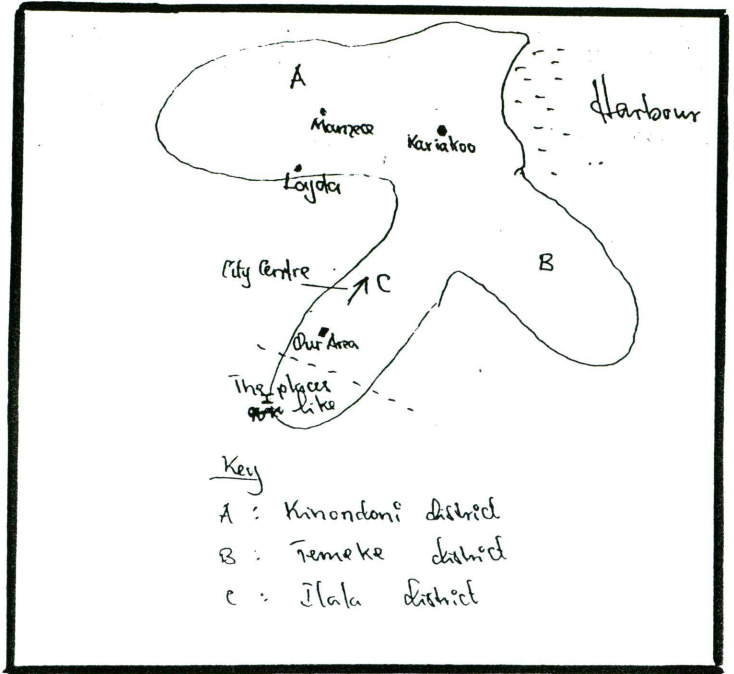 A
Harbour
Manzese
Kariakoo
Loyda
B
City Centre
C
Our Area
The places
I like
Key
A : Kinondoni district
B : Temeke district
C : Ilala district